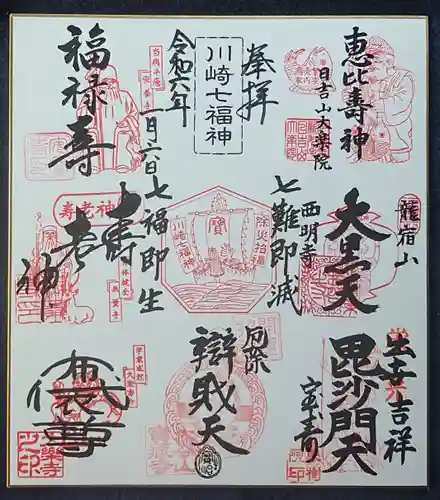 恵比壽神
日吉山大楽院
奉拝
川崎七福神
令和六年
一月六日
福禄寿
大黒天
西明寺
龍宿山
七難即滅
七福即生
寳
川崎七福神
除災招福
寿老神
寿老神
毘沙門天
出世吉祥
辯財天
厄除
布袋尊